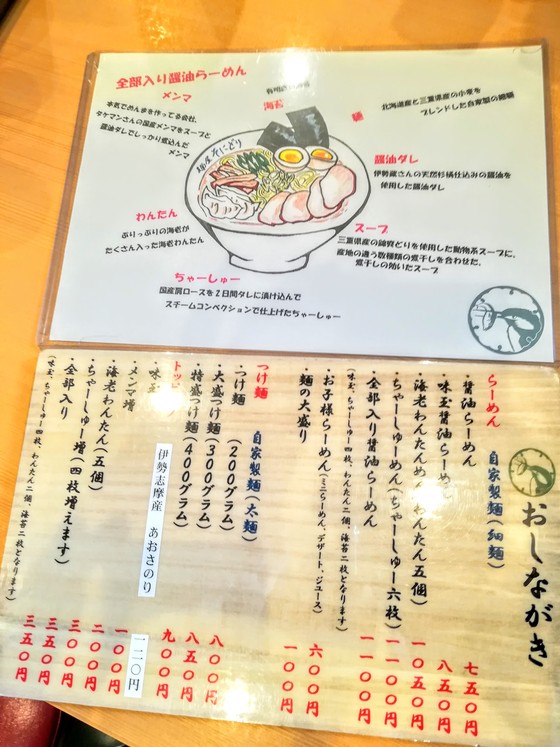 全部入り醤油らーめん
メンマ
本気でめん麻を作ってる会社、
タケマンさんの国産メンマをスープと
醤油ダレでしっかり煮込んだ
メンマ
海苔
麺
北海道産と三重県産の小麦を
ブレンドした自家製の細麺
醤油ダレ
伊勢蔵さんの天然杉桶仕込みの醤油を
使用した醤油ダレ
麺屋 そにどり
わんたん
ぷりっぷりの海老が
たくさん入った海老わんたん
スープ
三重県産の錦爽どりを使用した動物系スープに、
産地の違う数種類の煮干しを合わせた、
煮干しの効いたスープ
ちゃーしゅー
国産肩ロースを2日間タレに漬け込んで
スチームコンベクションで仕上げたちゃーしゅー
おしながき
らーめん 自家製麺(細麺)
・醤油らーめん 七五〇円
・味玉醤油らーめん 八五〇円
・海老わんたんめん(わんたん五個) 一〇五〇円
・ちゃーしゅーめん(ちゃーしゅー六枚) 一一〇〇円
・全部入り醤油らーめん 一一〇〇円
(味玉、ちゃーしゅー四枚、わんたん二個、海苔二枚となります)
・お子様らーめん(ミニらーめん、デザート、ジュース) 六〇〇円
・麺の大盛り 一〇〇円
つけ麺 自家製麺(太麺)
・つけ麺 (200グラム) 八〇〇円
・大盛つけ麺(300グラム) 八五〇円
・特盛つけ麺(400グラム) 九〇〇円
トッ
伊勢志摩産 あおさのり 一二〇円
・味玉 一〇〇円
・メンマ増 二〇〇円
・海老わんたん(五個) 三〇〇円
・ちゃーしゅー増(四枚増えます) 三五〇円
・全部入り 三五〇円
(味玉、ちゃーしゅー四枚、わんたん二個、海苔二枚となります)